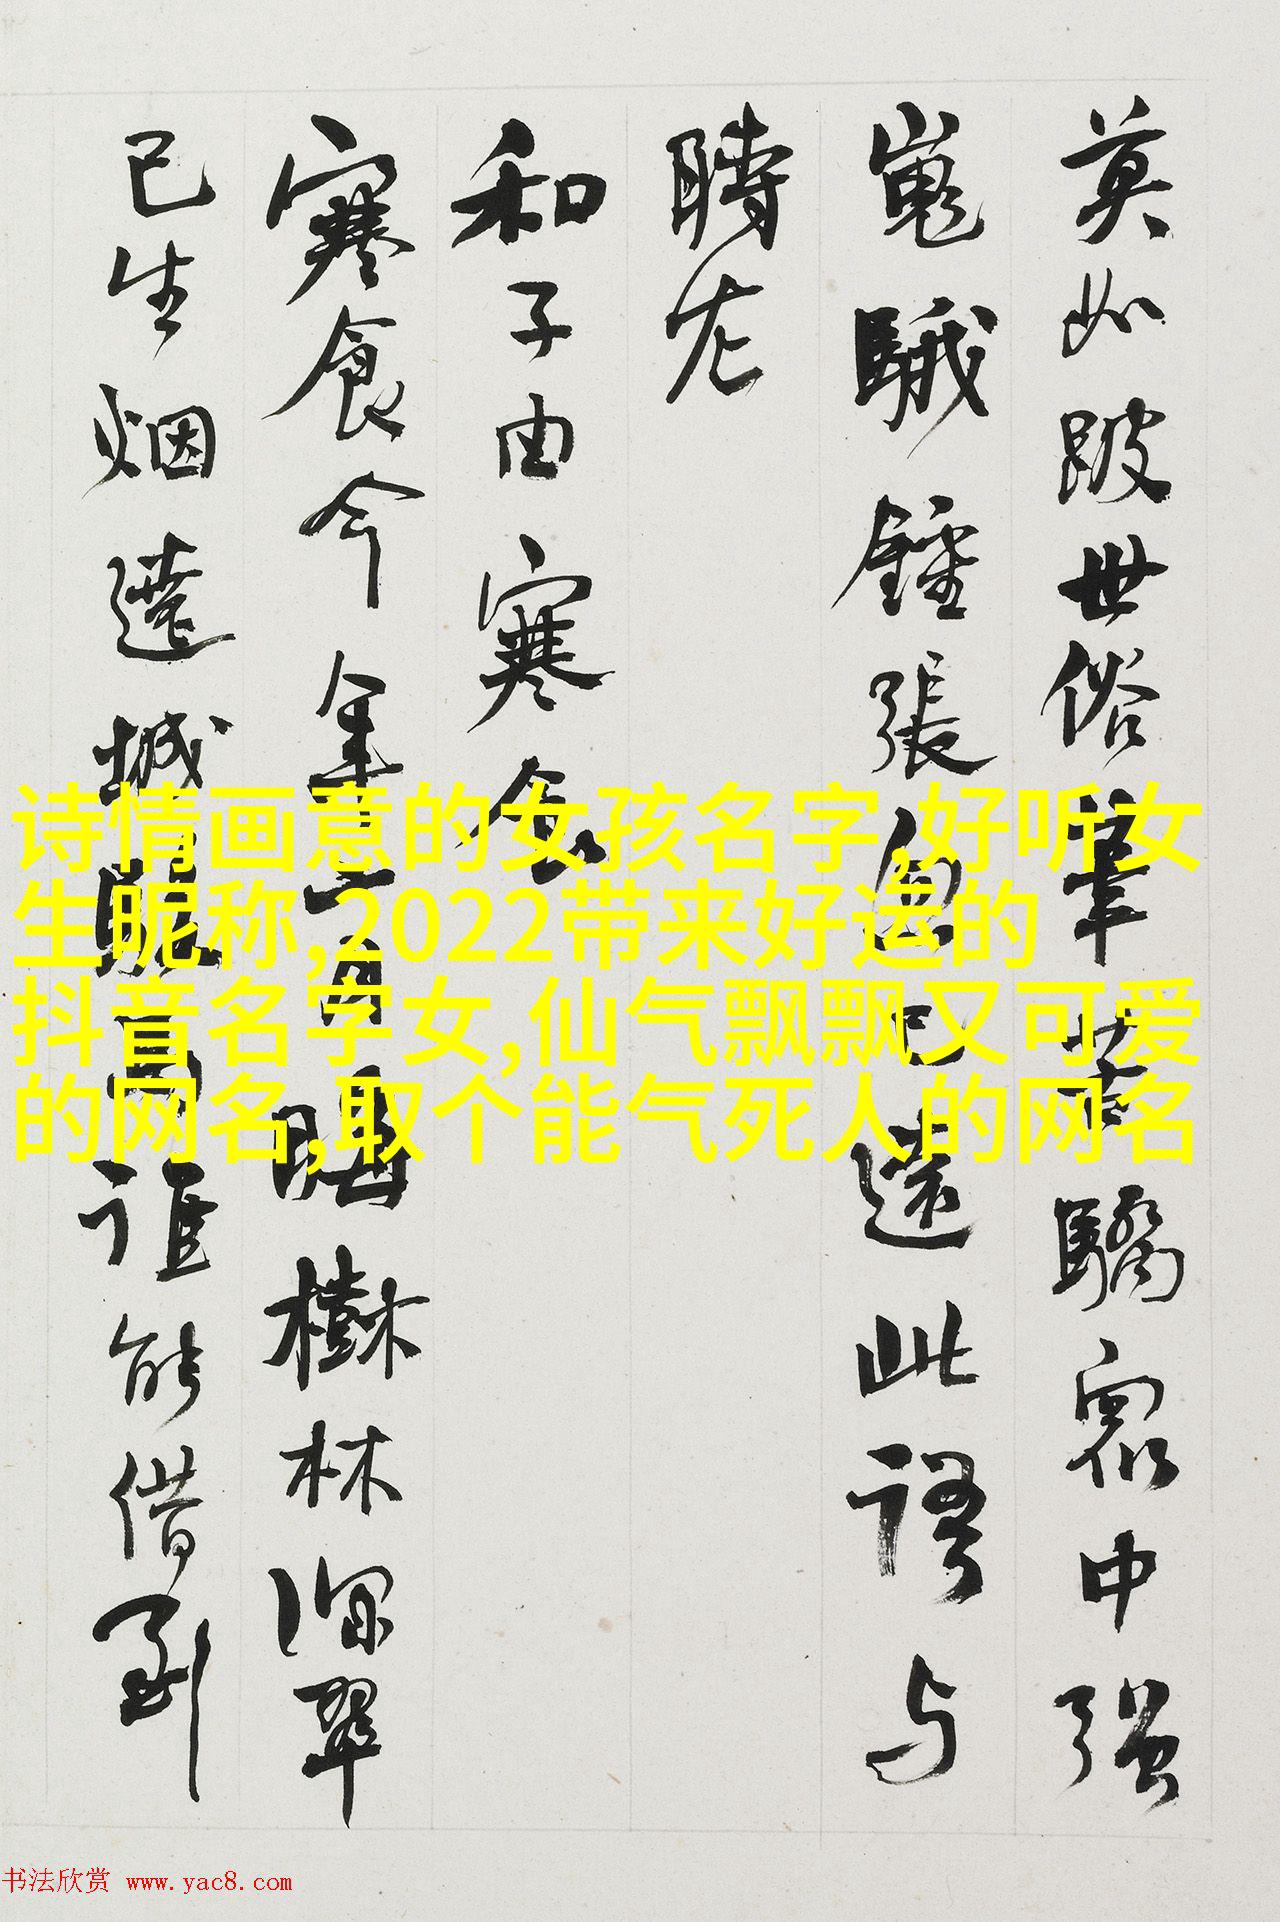 莫如跛世俗筆苦驕衆中強
嵬騀鍾張忽已遠此語与
時左
和子由寒食
寒食今年二月晦樹林深翠
已生烟遶城駿馬誰能借到
诗情画意的女孩名字,好听女
生昵称,2022带来好运的
抖音名字女,仙气飘飘又可爱
的网名,取个能气死人的网名
书法欣赏 www.yac8.com